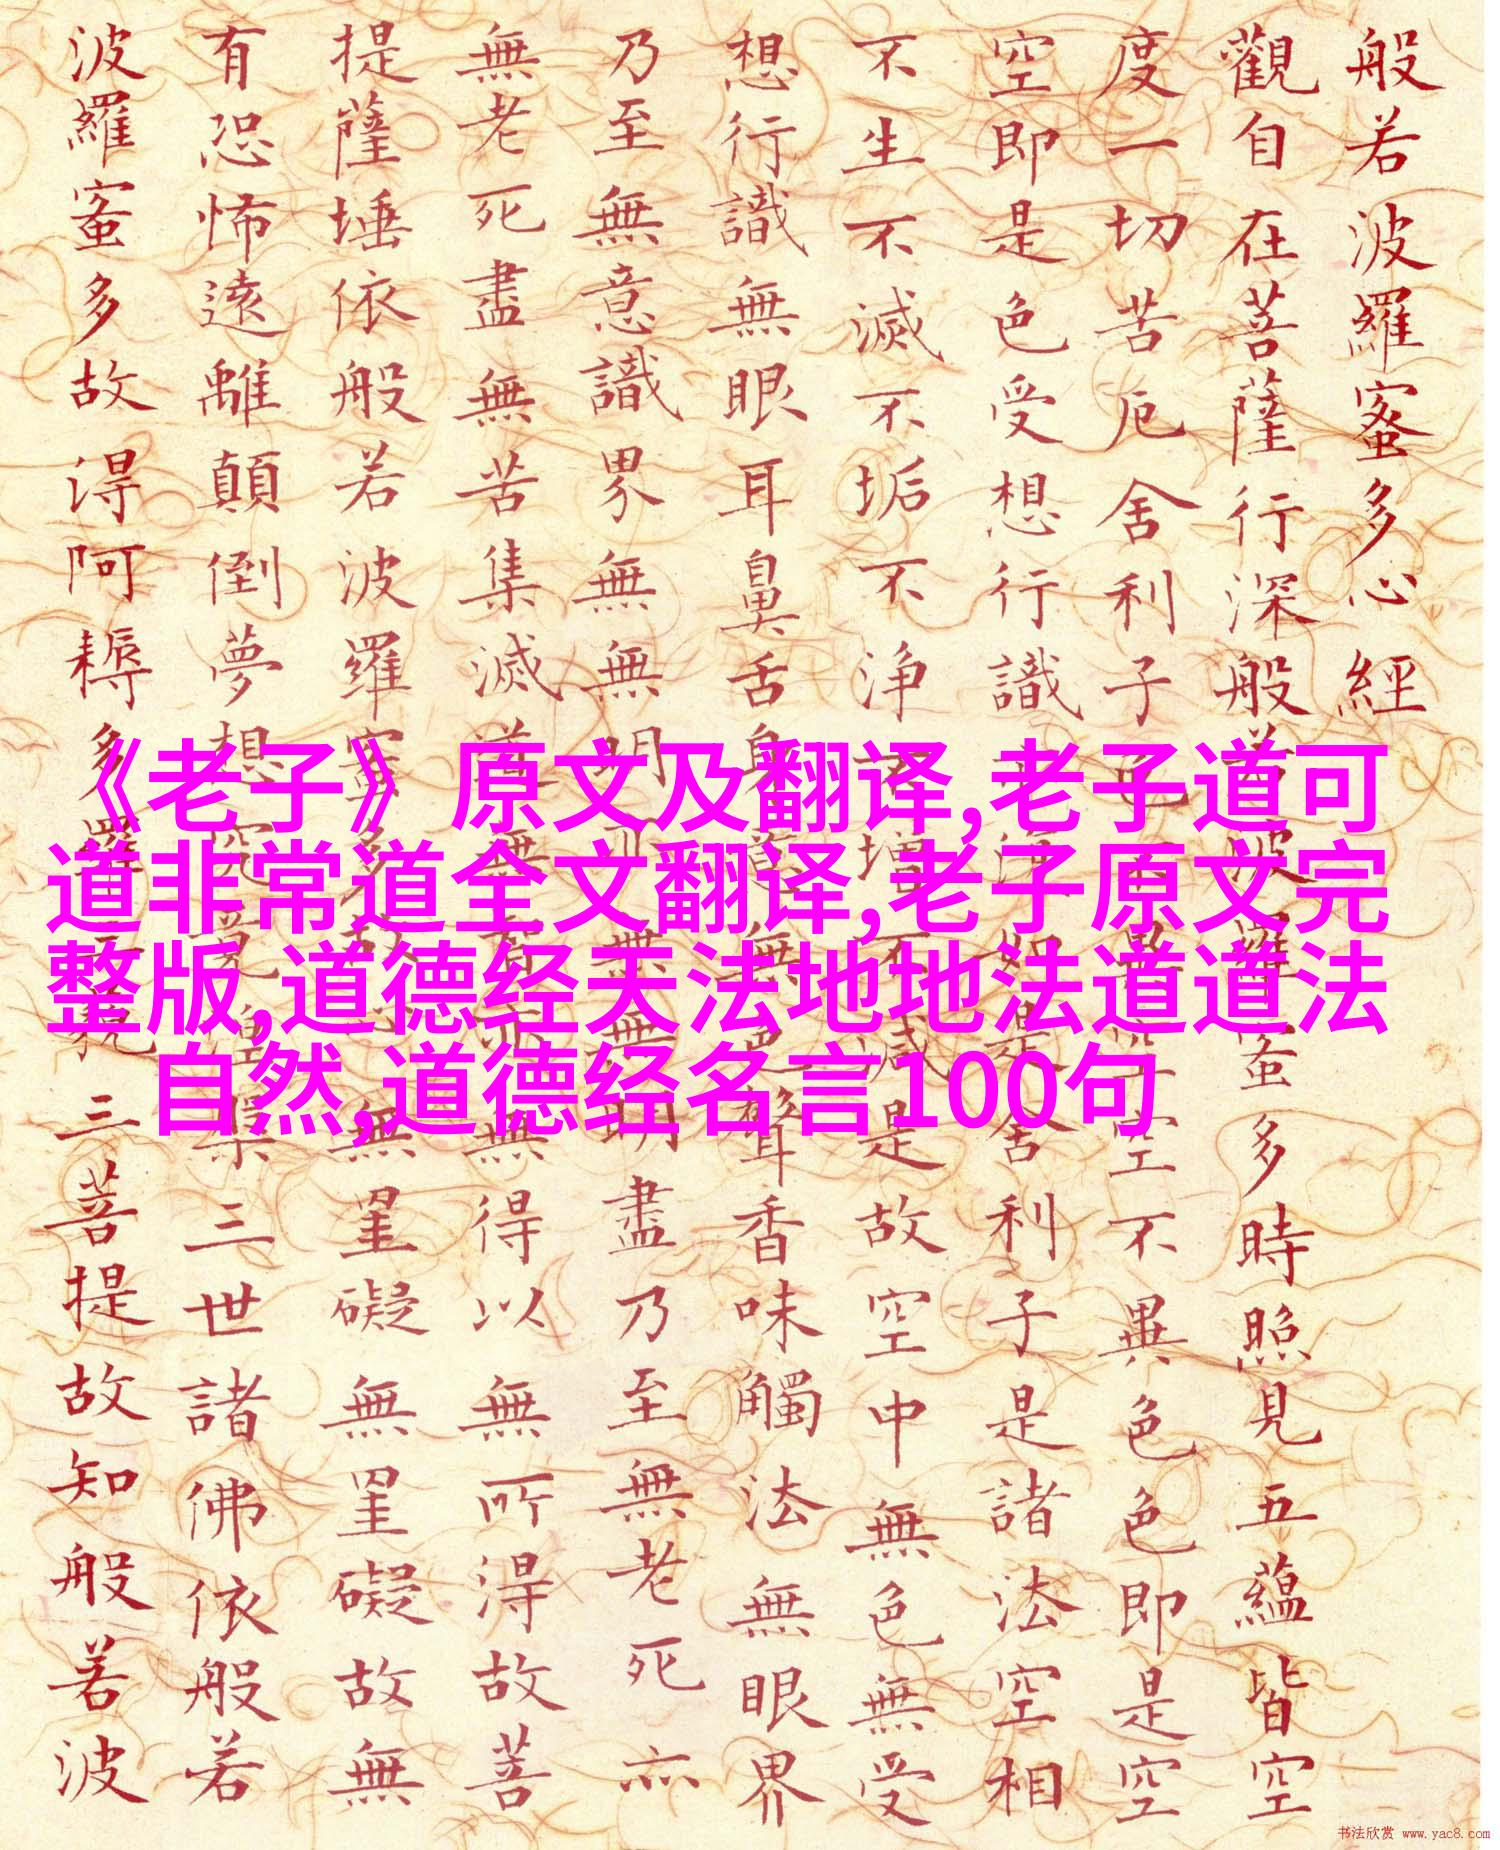 般若波羅蜜多心經
觀自在菩薩行深般若波羅蜜多時照見五蘊皆空
度一切苦厄舍利子色不異空空不異色色即是空
空即是色受想行識亦復如是舍利子是諸法空相
不生不滅不垢不浄不增不減是故空中無色無受
想行識無眼耳鼻舌身意無色聲香味觸法無眼界
乃至無意識界無無明亦無無明盡乃至無老死亦
無老死盡無苦集滅道無智亦無得以無所得故菩
提薩埵依般若波羅蜜多故心無罣礙無罣礙故無
有恐怖遠離顛倒夢想究竟涅槃三世諸佛依般若
波羅蜜多故得阿耨多羅三藐三菩提故知般若波
《老子》原文及翻译,老子道可
道非常道全文翻译,老子原文完
整版,道德经天法地地法道道法
自然,道德经名言100句
书法欣赏 www.yac8.com